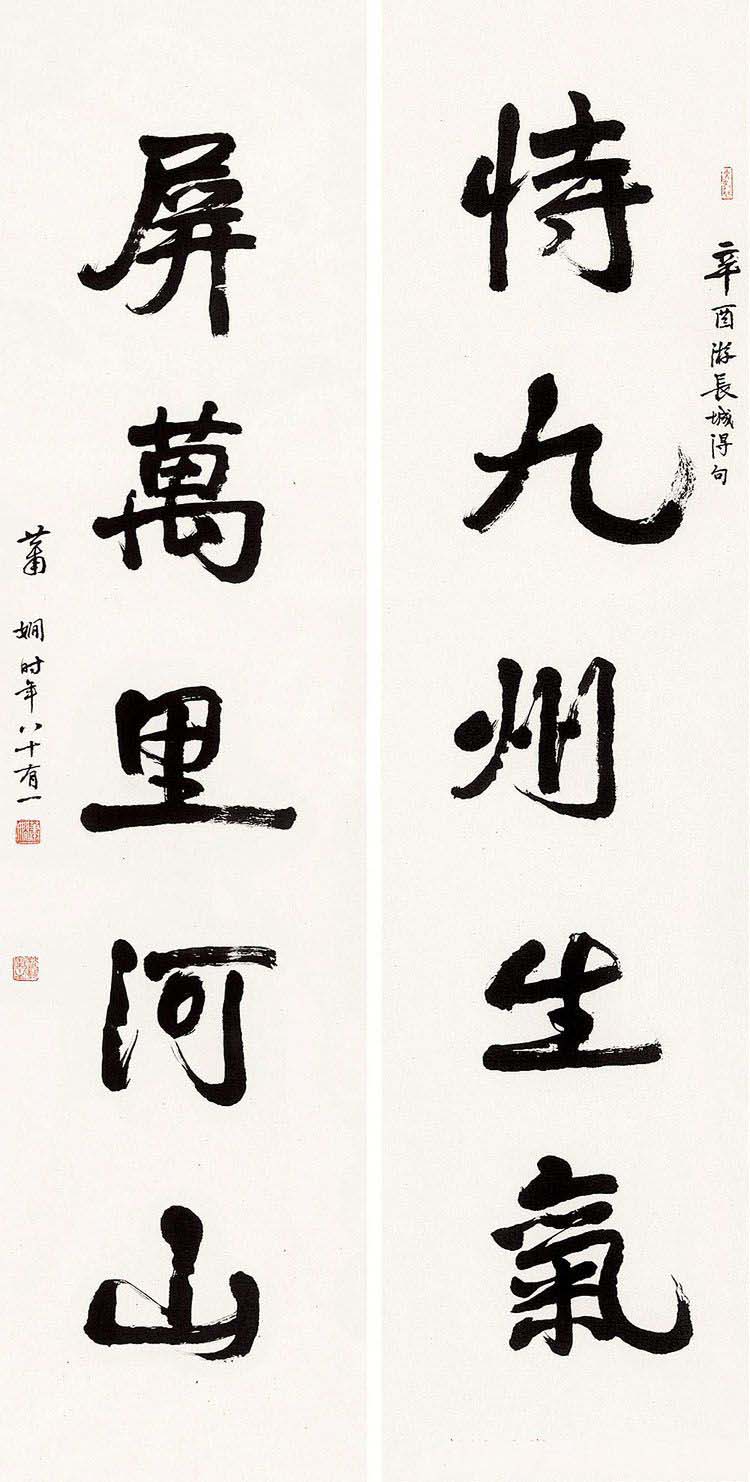 辛酉游長城得句
恃九州生氣
屏萬里河山
蕭嫻时年八十有一